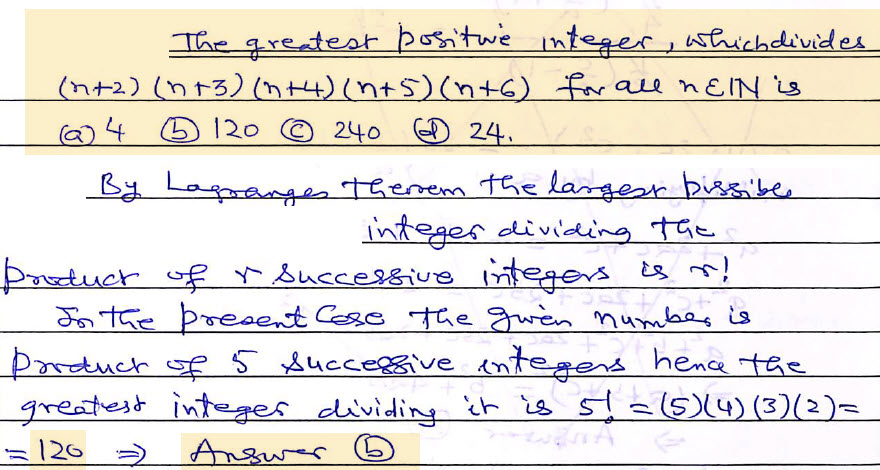 The greatest positive integer, which divides
(n+2) (n+3) (n+4) (n+5) (n+6) for all n ∈ IN is
(a) 4 (b) 120 (c) 240 (d) 24.
By Lagranges therem the largest pissible
integer dividing the
product of r successive integers is r!
In the present Case the given number is
product of 5 successive integers hence the
greatest integer dividing it is 5! = (5)(4)(3)(2) =
= 120 ⇒ Answer (b)